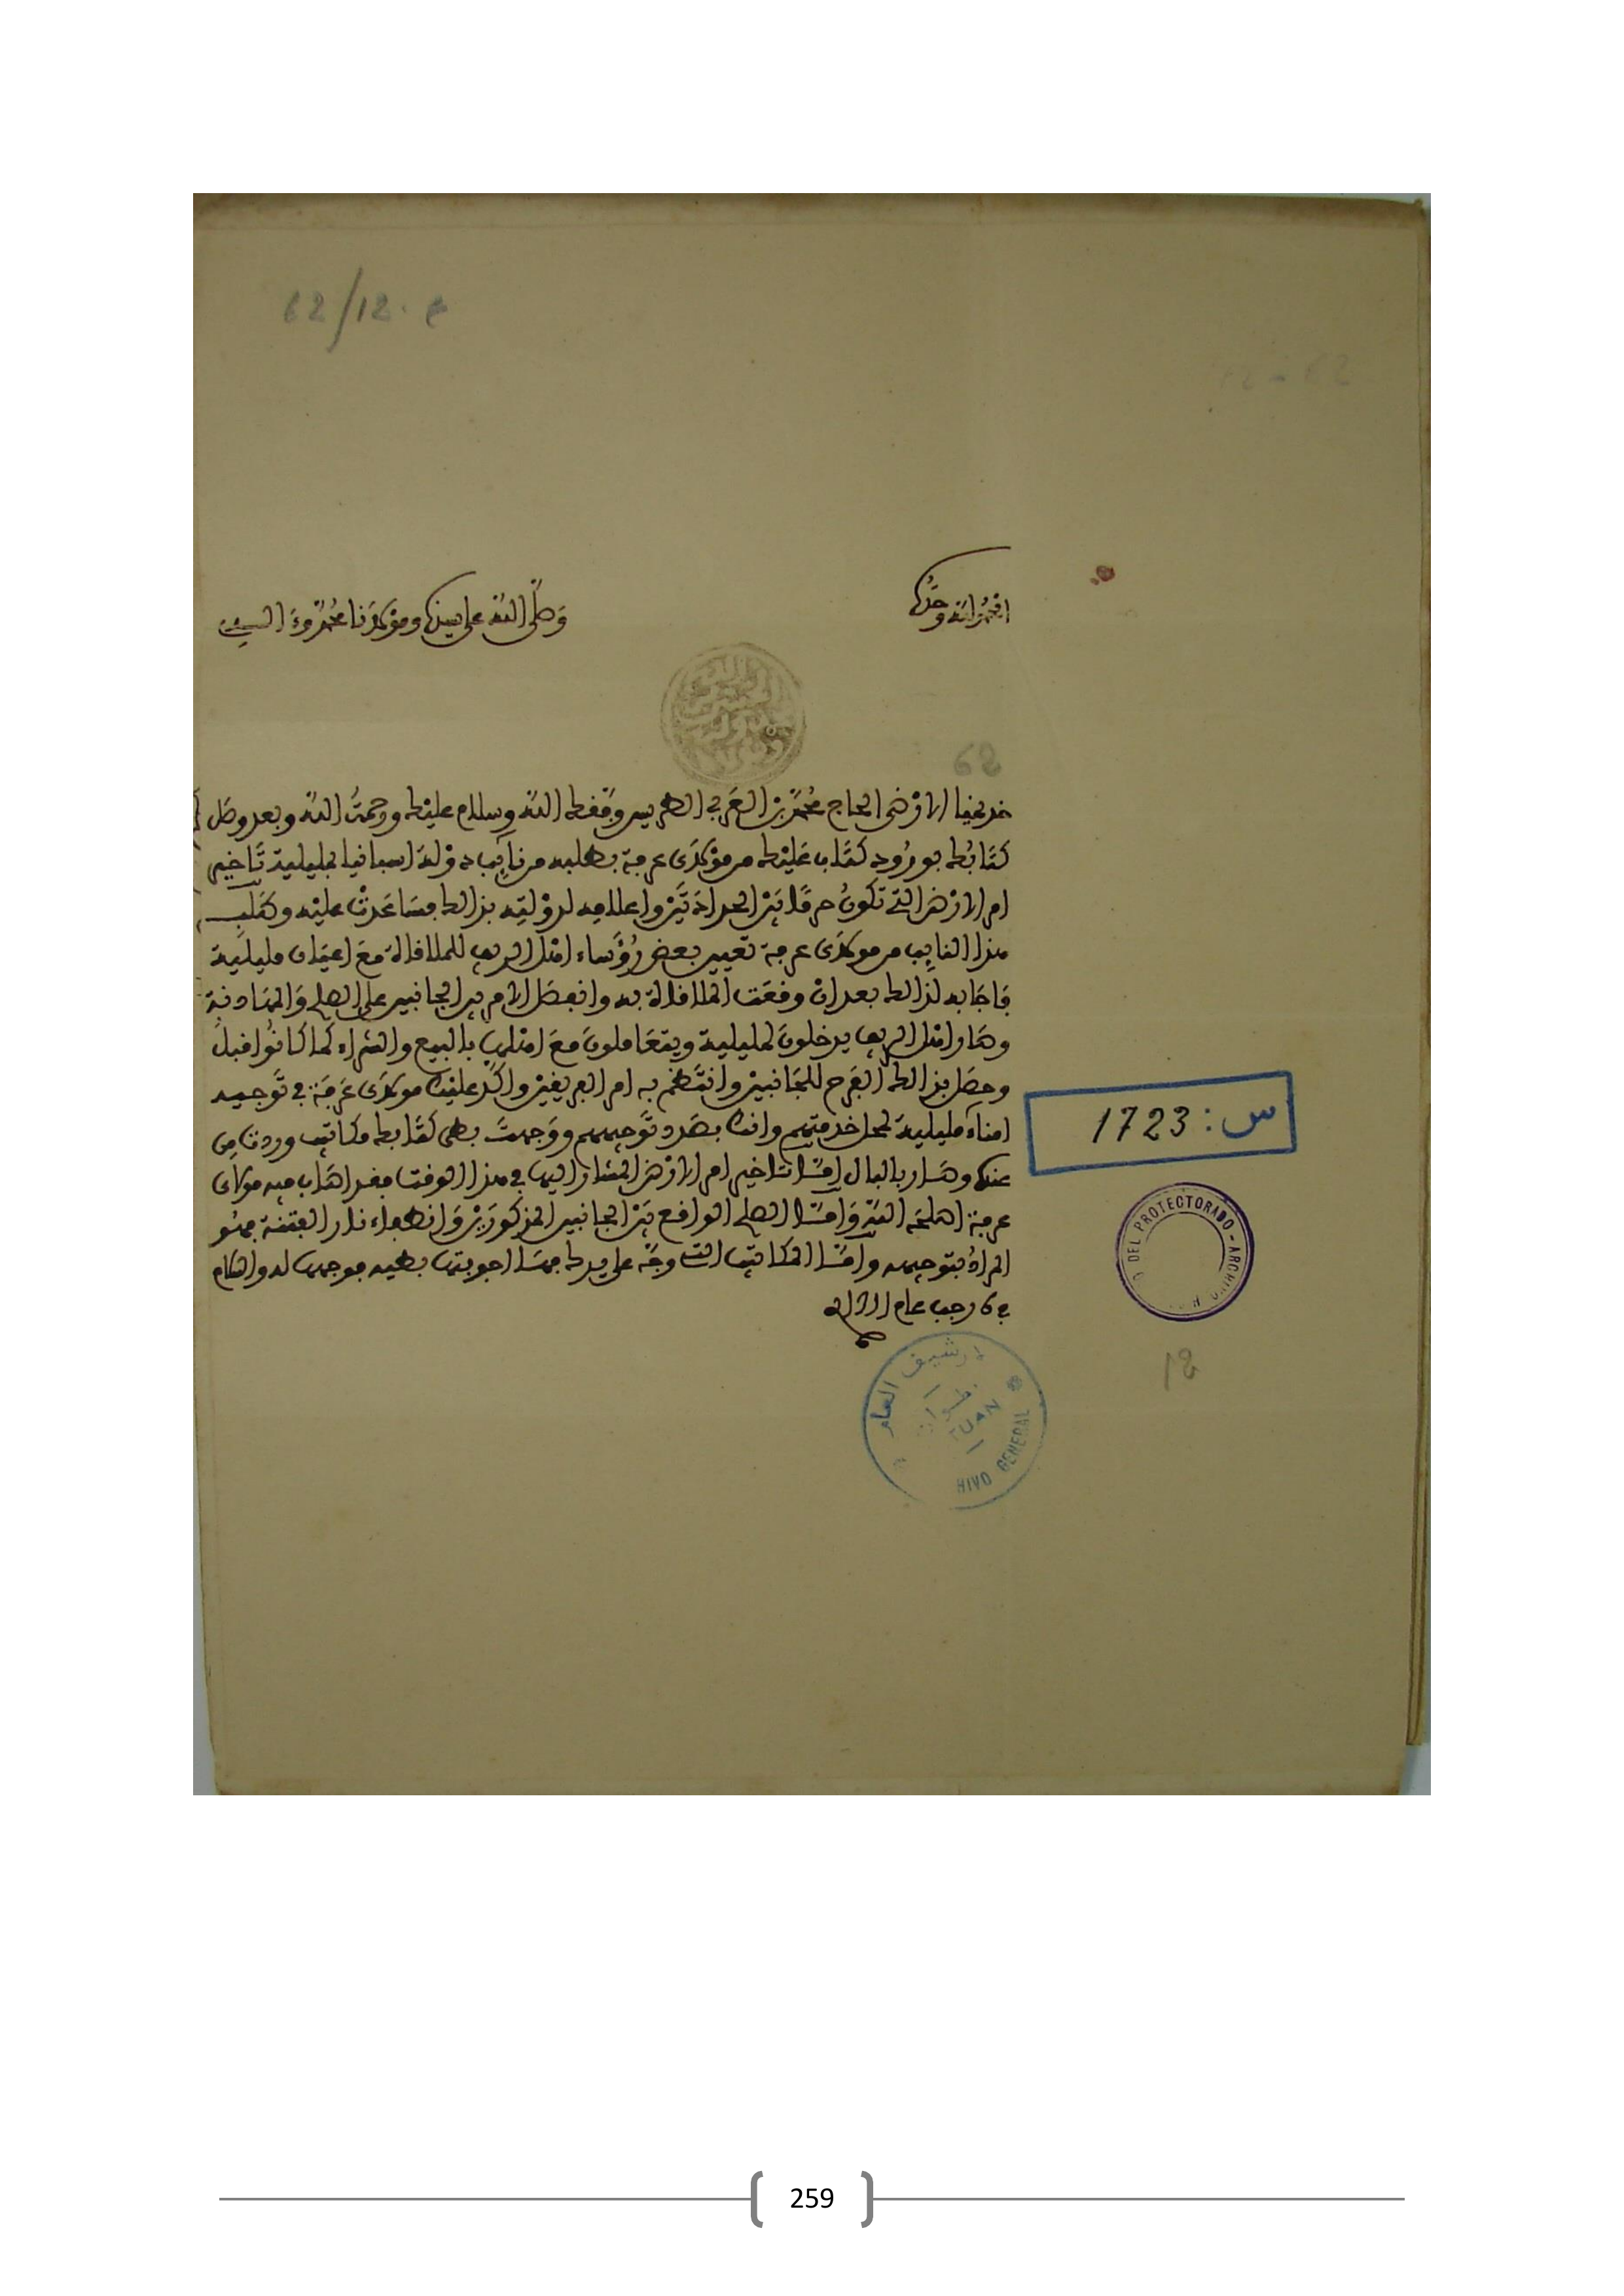 62/12. م
62 - 12
الحمد لله وحده
وصلى الله على سيدنا ومولانا محمد وءاله
62
خديمنا الارضى الحاج محمد بن العربي الطريس وفقك الله وسلام عليك ورحمت الله وبعد وصل
كتابك بورود كتاب عليك من مولاى عرفة بطلبه من نايب دولة اسبانيا بمليلية تاخير
امر الارض التى تكون حرما بين الحدادتين واعلامه لدولته بذلك فساعدت عليه وطلب
هذا النايب من مولاى عرفة تعيين بعض رؤساء اهل الريف للملاقاة مع اعيان مليلية
فاجابه لذلك بعد ان وقعت الملاقاة به وانفصل الامر بين الجانبين على الصلح والمهادنة
وصار اهل الريف يدخلون لمليلية ويتعاملون مع اهلها بالبيع والشراء كما كانوا قبل
وحصل بذلك الفرح للجانبين وانتظم به امر الفريقين واكد عليك مولاى عرفة في توجيه
امناء مليلية لمحل خدمتهم وانك بصدد توجيههم ووجهت بطى كتابك مكاتب وردت من
عنده وصار بالبال اما تاخير امر الارض المشار اليها في هذا الوقت فقد اصاب فيه مولاى
عرفة اصلحه الله واما الصلح الواقع بين الجانبين المذكورين وانطفاء نار الفتنة فهو
المراد بتوجيهه واما المكاتب التي وجه على يدك فها اجوبتها بطيه فوجهها له والسلام
في 6 رجب عام
س: 1723
DEL PROTECTORADO - ARCHIVO
18
ارشيف العام
تطوان
TUAN
HIVO GENERAL
259